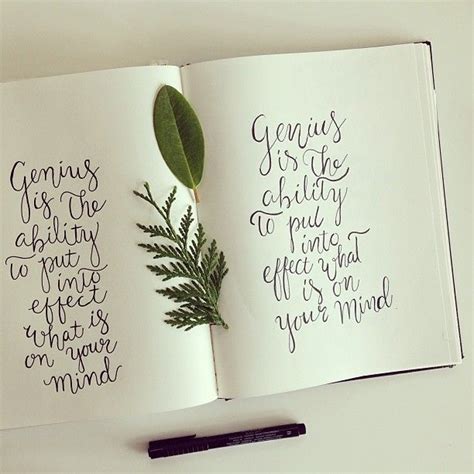 Genius
is the
ability
to put
into
effect
what is
on your
mind
Genius
is the
ability
to put
into
effect what
is on
your mind.